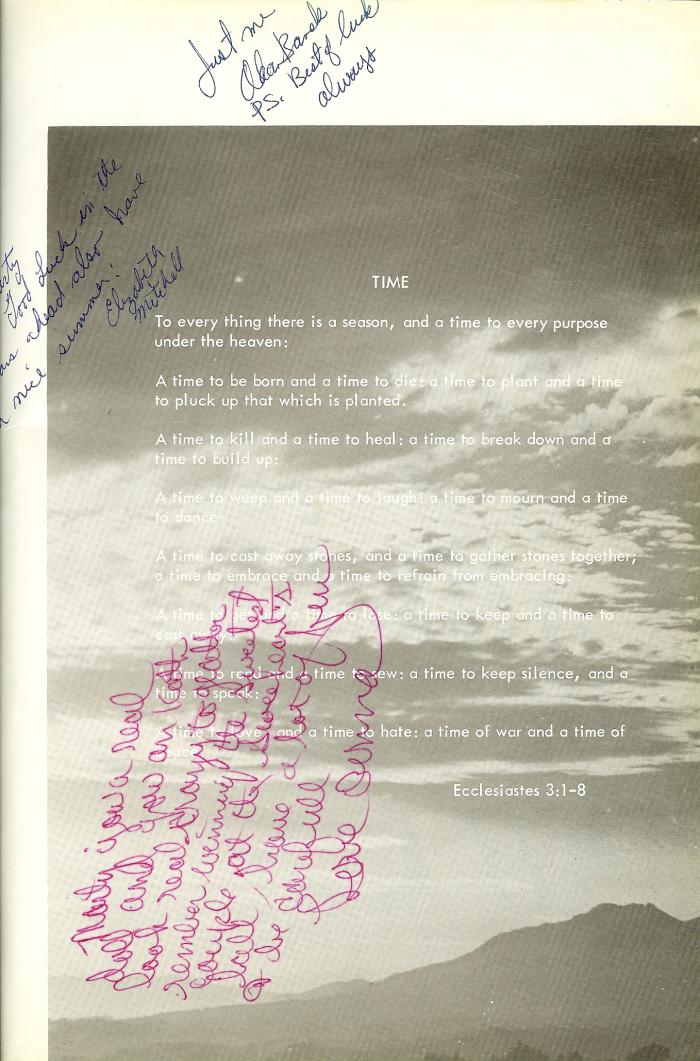 Just me
P.S. Best of luck
always
Good Luck in the
ahead also have
a nice summer.
Elizabeth
Mitchell
TIME
To every thing there is a season, and a time to every purpose
under the heaven:
A time to be born and a time to die: a time to plant and a time
to pluck up that which is planted.
A time to kill and a time to heal: a time to break down and a
time to build up:
A time to weep and a time to laugh: a time to mourn and a time
to dance:
A time to cast away stones, and a time to gather stones together;
a time to embrace and a time to refrain from embracing:
A time to get and a time to lose: a time to keep and a time to
cast away:
A time to rend and a time to sew: a time to keep silence, and a
time to speak:
A time to love, and a time to hate: a time of war and a time of
peace.
Ecclesiastes 3:1-8
Marty your a real
and you an
look real to each other
remember winning the Sweetest
couple at the Sweethearts
ball, have a lot of fun
&amp; be careful
Love